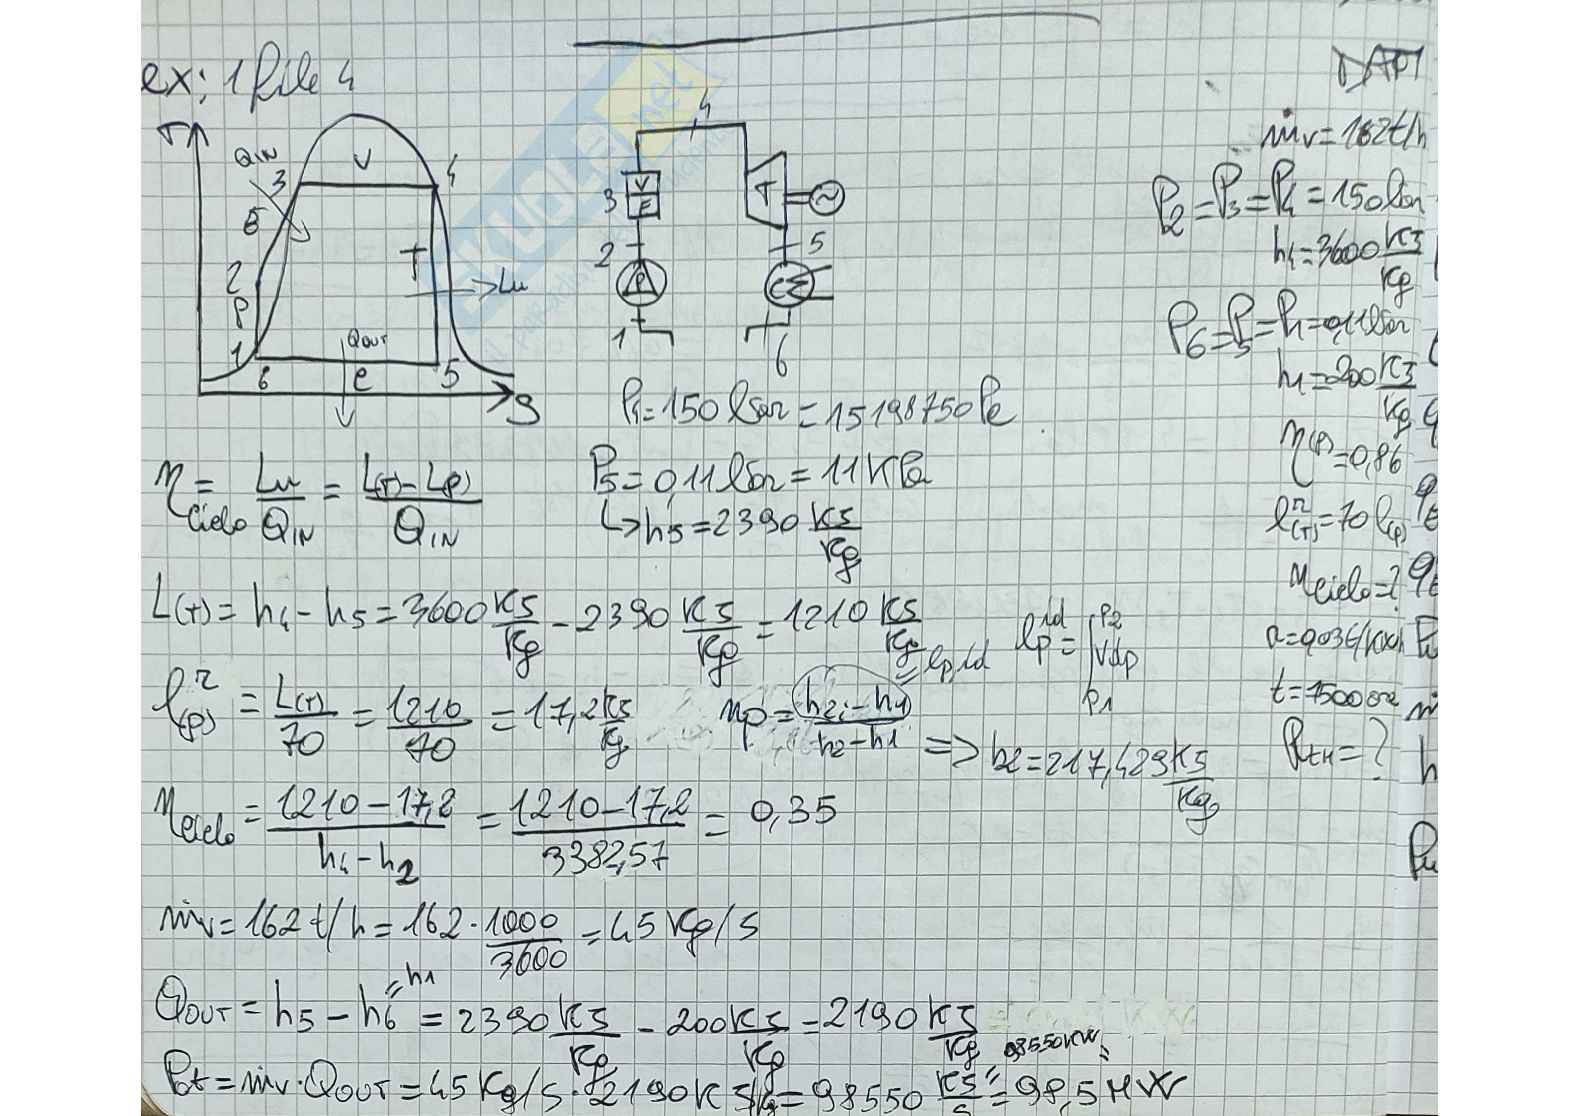 ex: 1 file 4
T
QIN
3
V
4
E
2
P
T
Lu
1
QOUT
6
e
5
S
4
V
E
3
2
P
1
T
~
5
6
DATI
ṁv = 162 t/h
P2 = P3 = P4 = 150 bar
h4 = 3600 KJ/Kg
P6 = P5 = P1 = 0,11 bar
h1 = 200 KJ/Kg
η(P) = 0,86
l(T)^r = 70 l(P)
ηciclo = ?
a = 0,03 €/KWh
t = 7500 ore
Pth = ?
P4 = 150 bar = 15198750 Pa
P5 = 0,11 bar = 11 KPa
↳ h5 = 2390 KJ/Kg
ηciclo = Lu/QIN = (L(T) - L(P))/QIN
L(T) = h4 - h5 = 3600 KJ/Kg - 2390 KJ/Kg = 1210 KJ/Kg
= lp,id
lp^id = ∫ p1 p2 Vdp
l(P)^r = L(T)/70 = 1210/70 = 17,2 KJ/Kg
ηp = (h2i - h1)/(h2 - h1) => h2 = 217,429 KJ/Kg
ηciclo = (1210 - 17,2)/(h4 - h2) = (1210 - 17,2)/3382,57 = 0,35
ṁv = 162 t/h = 162 · 1000/3600 = 45 Kg/s
QOUT = h5 - h6 = 2390 KJ/Kg - 200 KJ/Kg = 2190 KJ/Kg
= h1
98550 KW
Pot = ṁv · QOUT = 45 Kg/s · 2190 KJ/Kg = 98550 KJ/s = 98,5 MW
SKUOLA.net